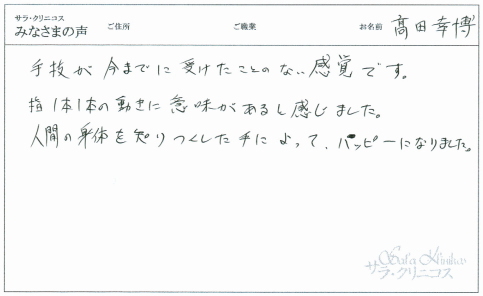 サラ・クリニコス
みなさまの声 ご住所 ご職業 お名前 髙田幸博
手技が今までに受けたことのない感覚です。
指1本1本の動きに意味があると感じました。
人間の身体を知りつくした手によって、ハッピーになりました。
Sara Klinikos
サラ・クリニコス